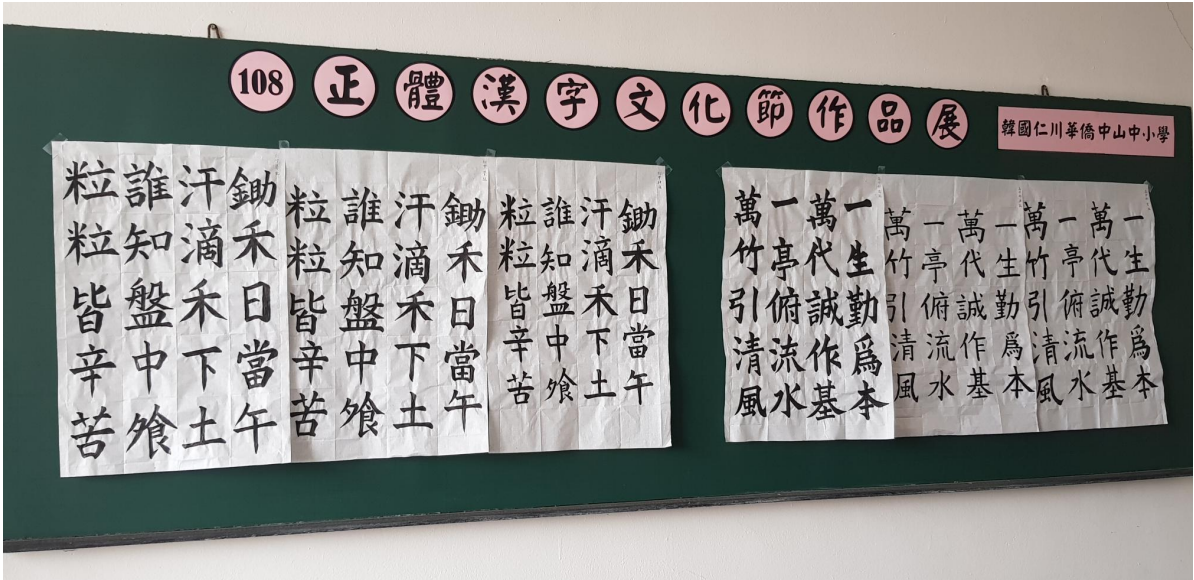 108正體漢字文化節作品展
韓國仁川華僑中山中小學
鋤禾日當午
汗滴禾下土
誰知盤中飧
粒粒皆辛苦
鋤禾日當午
汗滴禾下土
誰知盤中飧
粒粒皆辛苦
鋤禾日當午
汗滴禾下土
誰知盤中飧
粒粒皆辛苦
一生勤爲本
萬代誠作基
一亭俯流水
萬竹引清風
一生勤爲本
萬代誠作基
一亭俯流水
萬竹引清風
一生勤爲本
萬代誠作基
一亭俯流水
萬竹引清風